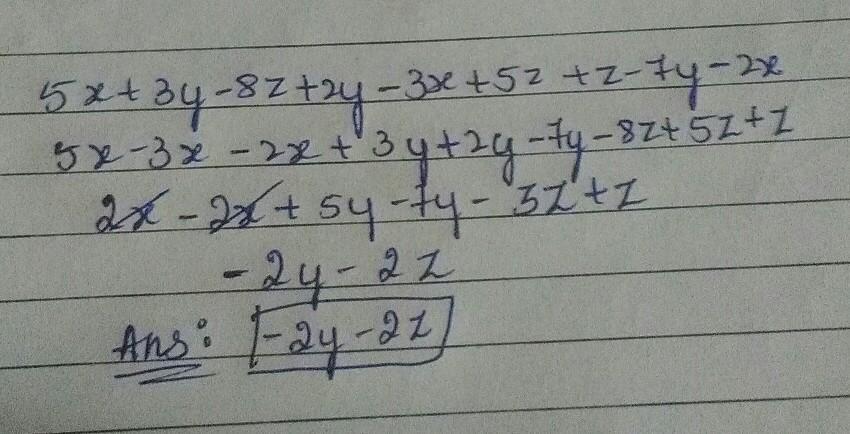 5x+3y-8z+2y-3x+5z+z-7y-2x
5x-3x-2x+3y+2y-7y-8z+5z+z
2x-2x+5y-7y-3z+z
-2y-2z
Ans: -2y-2z